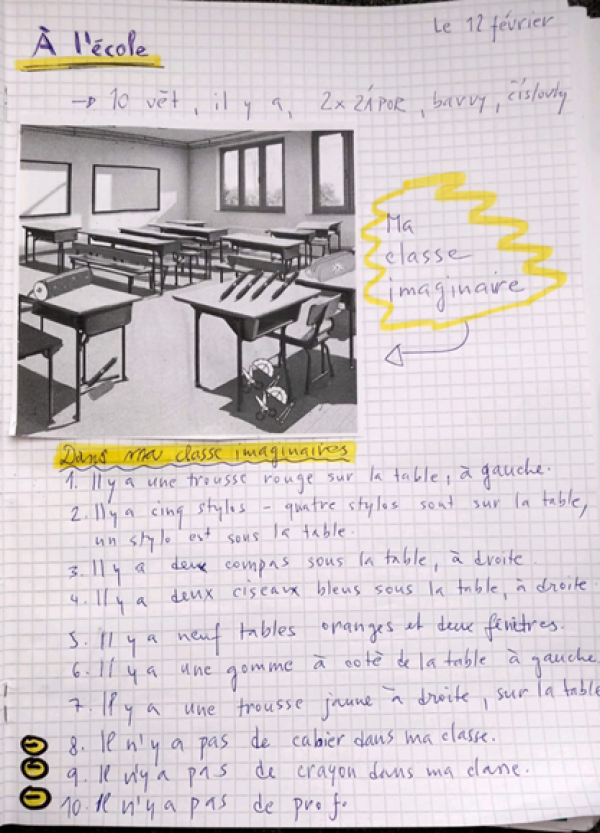 Le 12 février
À l'école
→ 10 vět, il y a, 2x ZÁPOR, barvy, číslovky
Ma
classe
imaginaire
Dans ma classe imaginaires
1. Il y a une trousse rouge sur la table, à gauche.
2. Il y a cinq stylos - quatre stylos sont sur la table,
un stylo est sous la table.
3. Il y a deux compas sous la table, à droite.
4. Il y a deux ciseaux bleus sous la table, à droite.
5. Il y a neuf tables oranges et deux fénêtres.
6. Il y a une gomme à cotè de la table à gauche.
7. Il y a une trousse jaune à droite, sur la table
8. Il n'y a pas de cahier dans ma classe.
9. Il n'y a pas de crayon dans ma classe.
10. Il n'y a pas de prof.